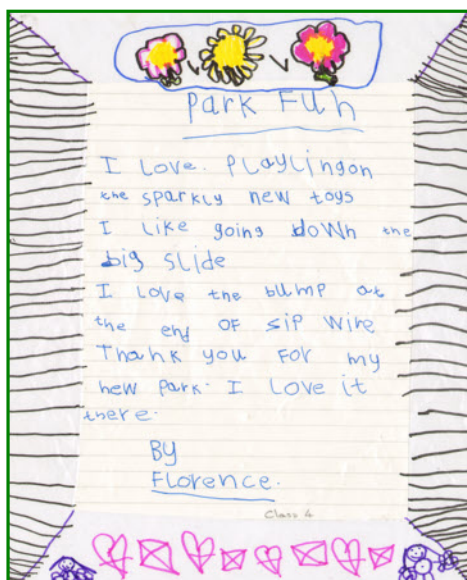 Park Fun
I Love. PLayLingon
the sparkly new toys
I like going down the
big slide
I Love the bump at
the end OF sip wire
Thank you For my
new Park. I Love it
there.
By
Florence.
Class 4